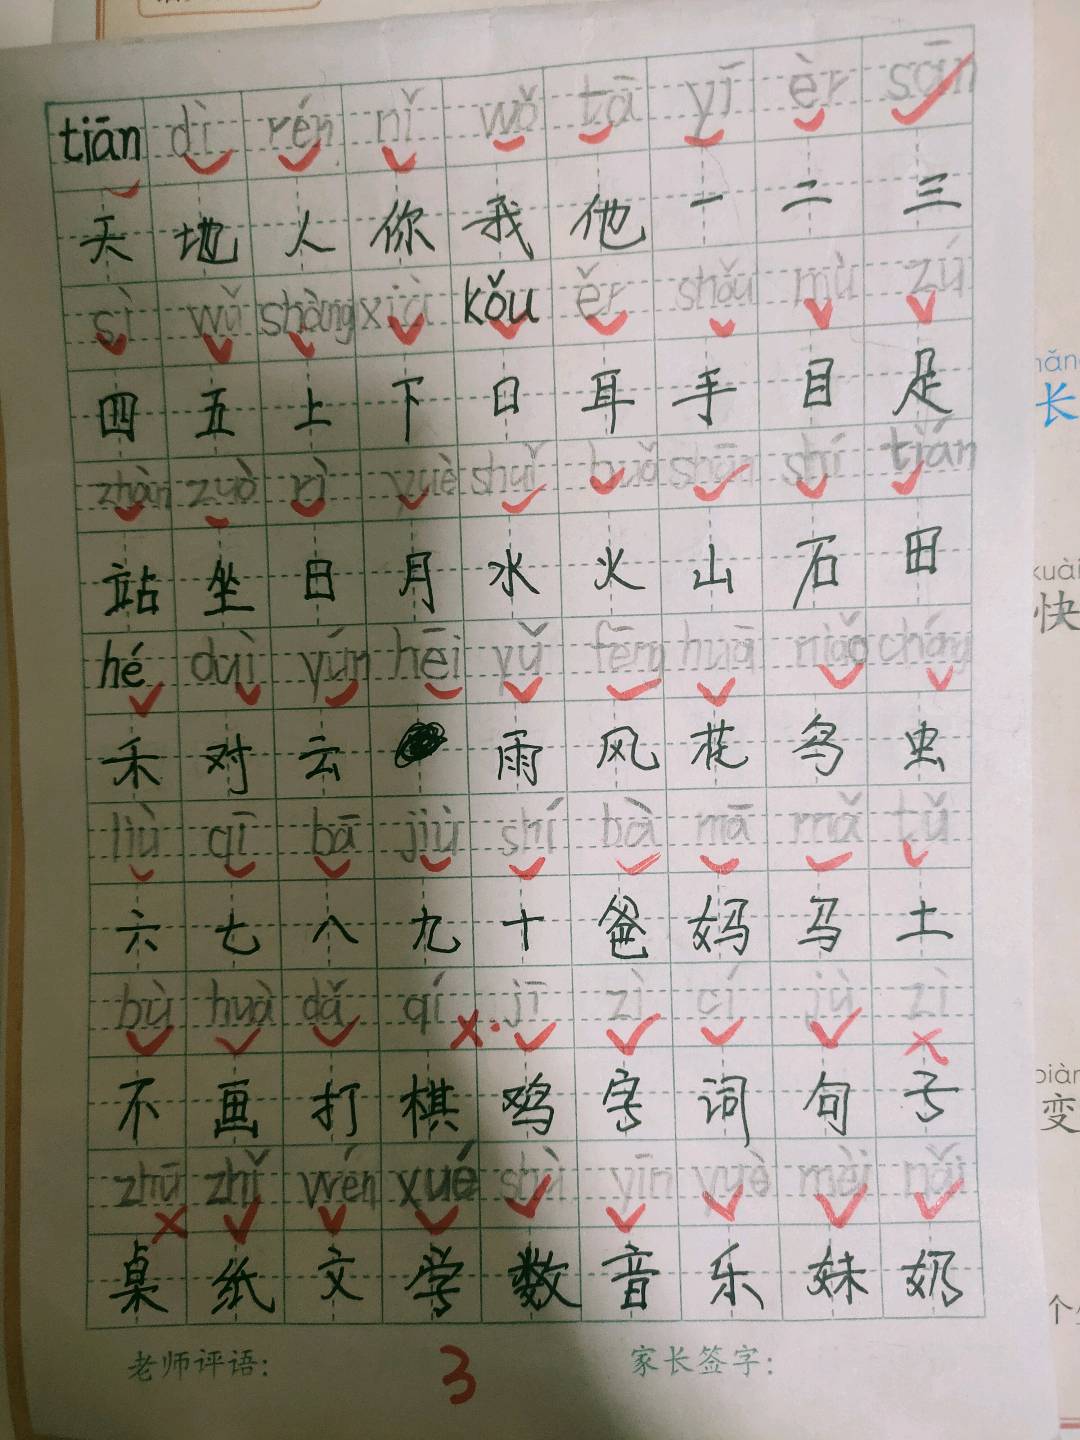 tiān dì rén nǐ wǒ tā yī èr sān
天 地 人 你 我 他 一 二 三
sì wǔ shàng xià kǒu ěr shǒu mù zú
四 五 上 下 口 耳 手 目 足
zhàn zuò rì yuè shuǐ huǒ shān shí tián
站 坐 日 月 水 火 山 石 田
hé duì yún hēi yǔ fēng huā niǎo chóng
禾 对 云 雨 风 花 鸟 虫
liù qī bā jiǔ shí bà mā mǎ tǔ
六 七 八 九 十 爸 妈 马 土
bù huà dǎ qí jī zì cí jù zì
不 画 打 棋 鸡 字 词 句 子
zhū zhǐ wén xué shù yīn yuè mèi nǎi
桌 纸 文 学 数 音 乐 妹 奶
老师评语: 3 家长签字:
长
kuài
快
biàn
变
个